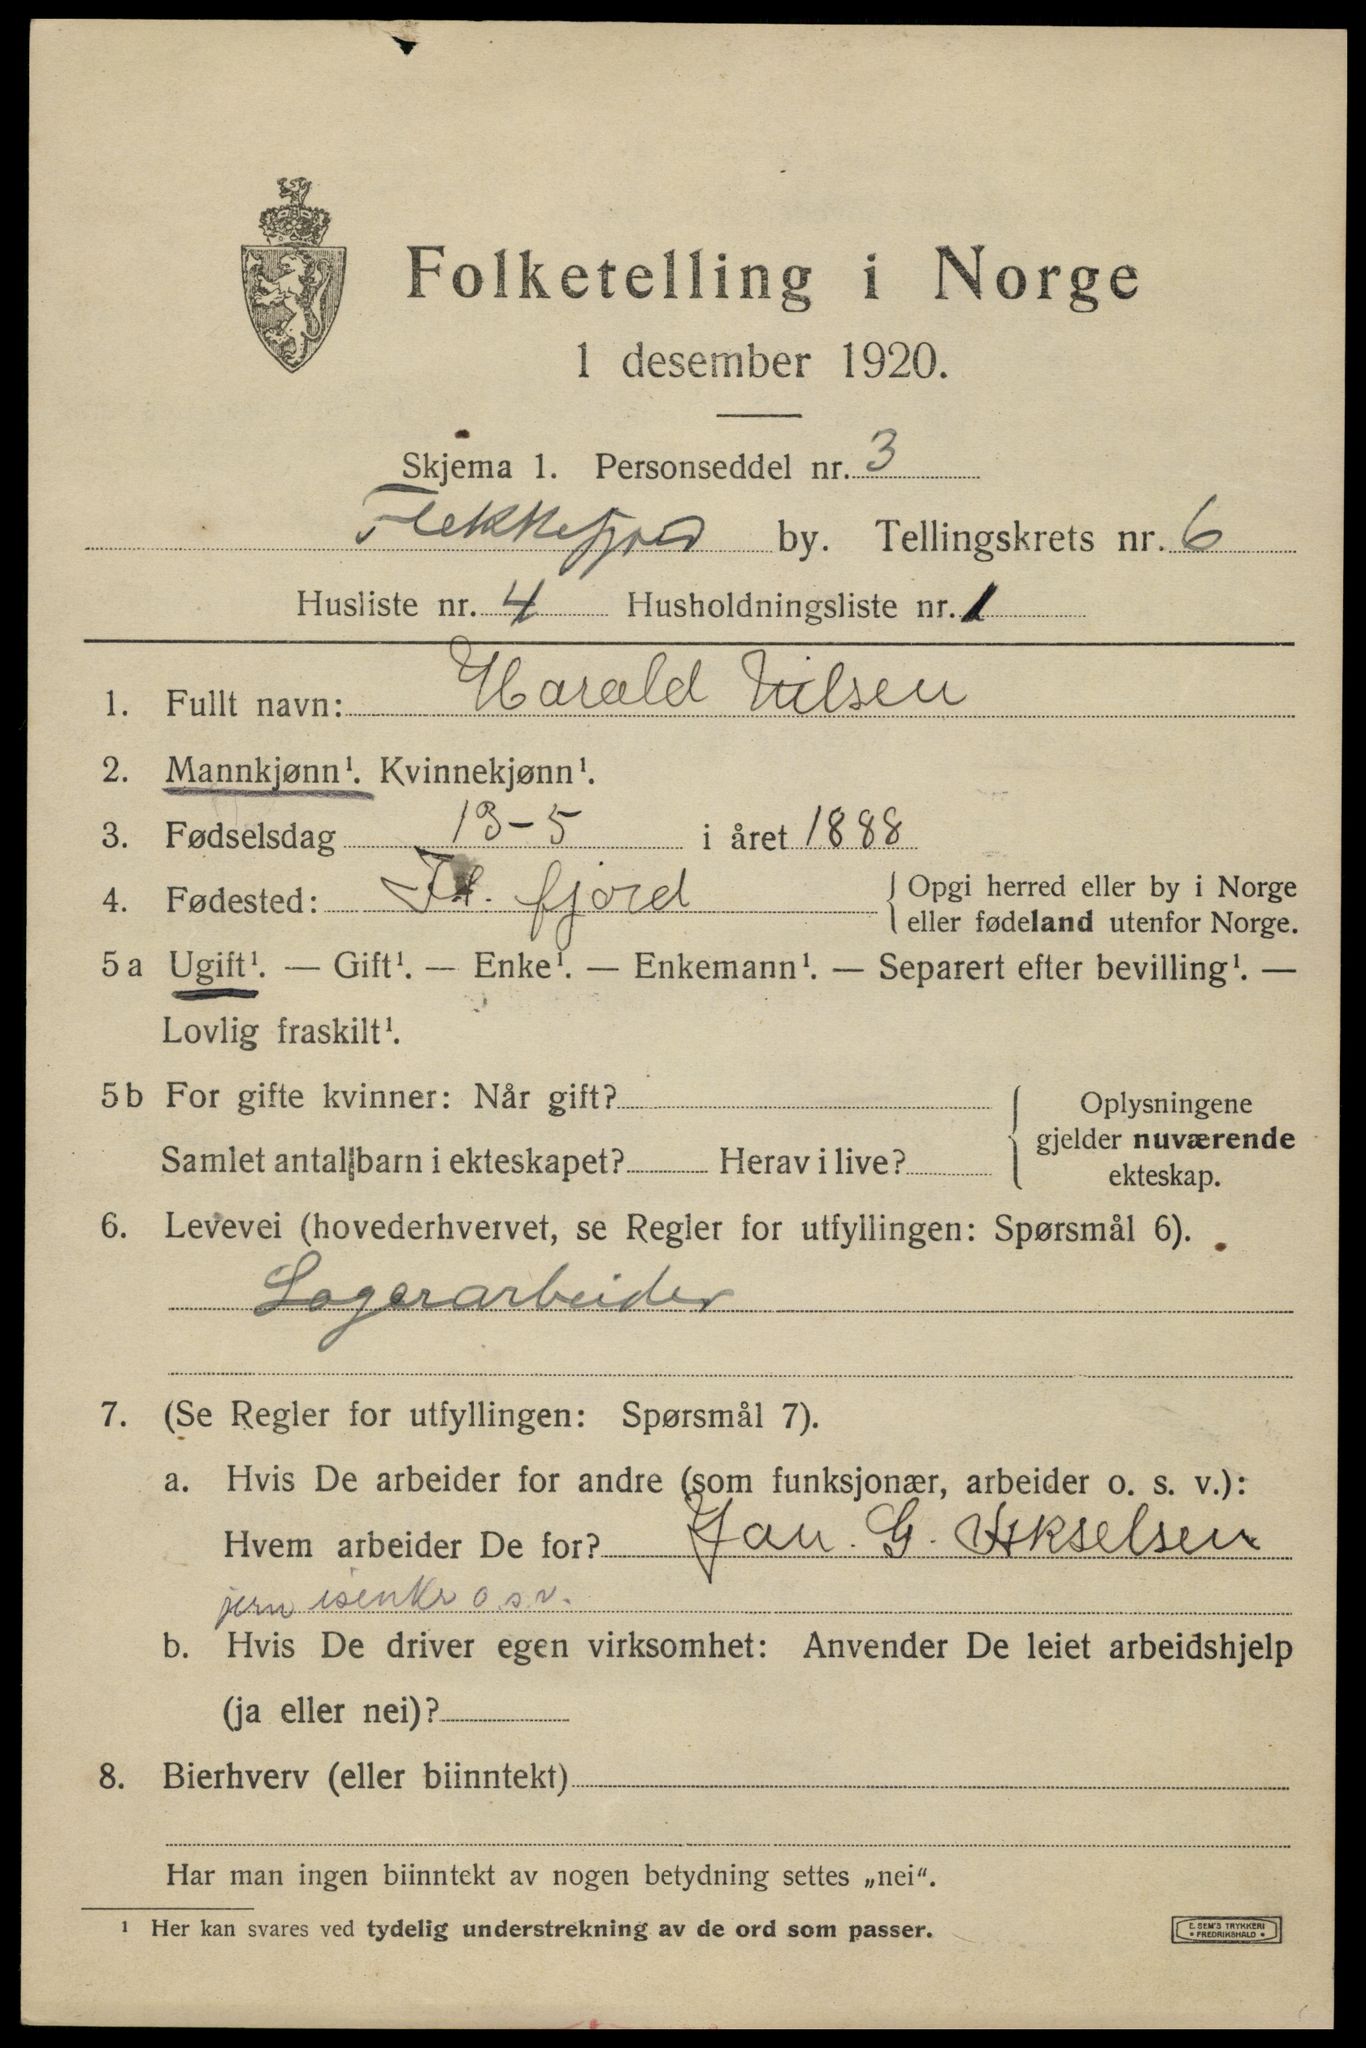 Folketelling i Norge
1 desember 1920.
Skjema 1. Personseddel nr. 3
Flekkefjord by. Tellingskrets nr. 6
Husliste nr. 4 Husholdningsliste nr. 1
1. Fullt navn: Harald Nilsen
2. Mannkjønn¹. Kvinnekjønn¹.
3. Fødselsdag 13-5 i året 1888
4. Fødested: Fl. fjord { Opgi herred eller by i Norge
eller fødeland utenfor Norge.
5a Ugift¹. — Gift¹. — Enke¹. — Enkemann¹. — Separert efter bevilling¹. —
Lovlig fraskilt¹.
5b For gifte kvinner: Når gift?
Samlet antall barn i ekteskapet? Herav i live?
Oplysningene
gjelder nuværende
ekteskap.
6. Levevei (hovederhvervet, se Regler for utfyllingen: Spørsmål 6).
Lagerarbeider
7. (Se Regler for utfyllingen: Spørsmål 7).
a. Hvis De arbeider for andre (som funksjonær, arbeider o. s. v.):
Hvem arbeider De for? Jan. G. Akselsen
jern isenkr o.s.v.
b. Hvis De driver egen virksomhet: Anvender De leiet arbeidshjelp
(ja eller nei)?
8. Bierhverv (eller biinntekt)
Har man ingen biinntekt av nogen betydning settes „nei“.
¹ Her kan svares ved tydelig understrekning av de ord som passer.
E. SEM'S TRYKKERI
• FREDRIKSHALD •